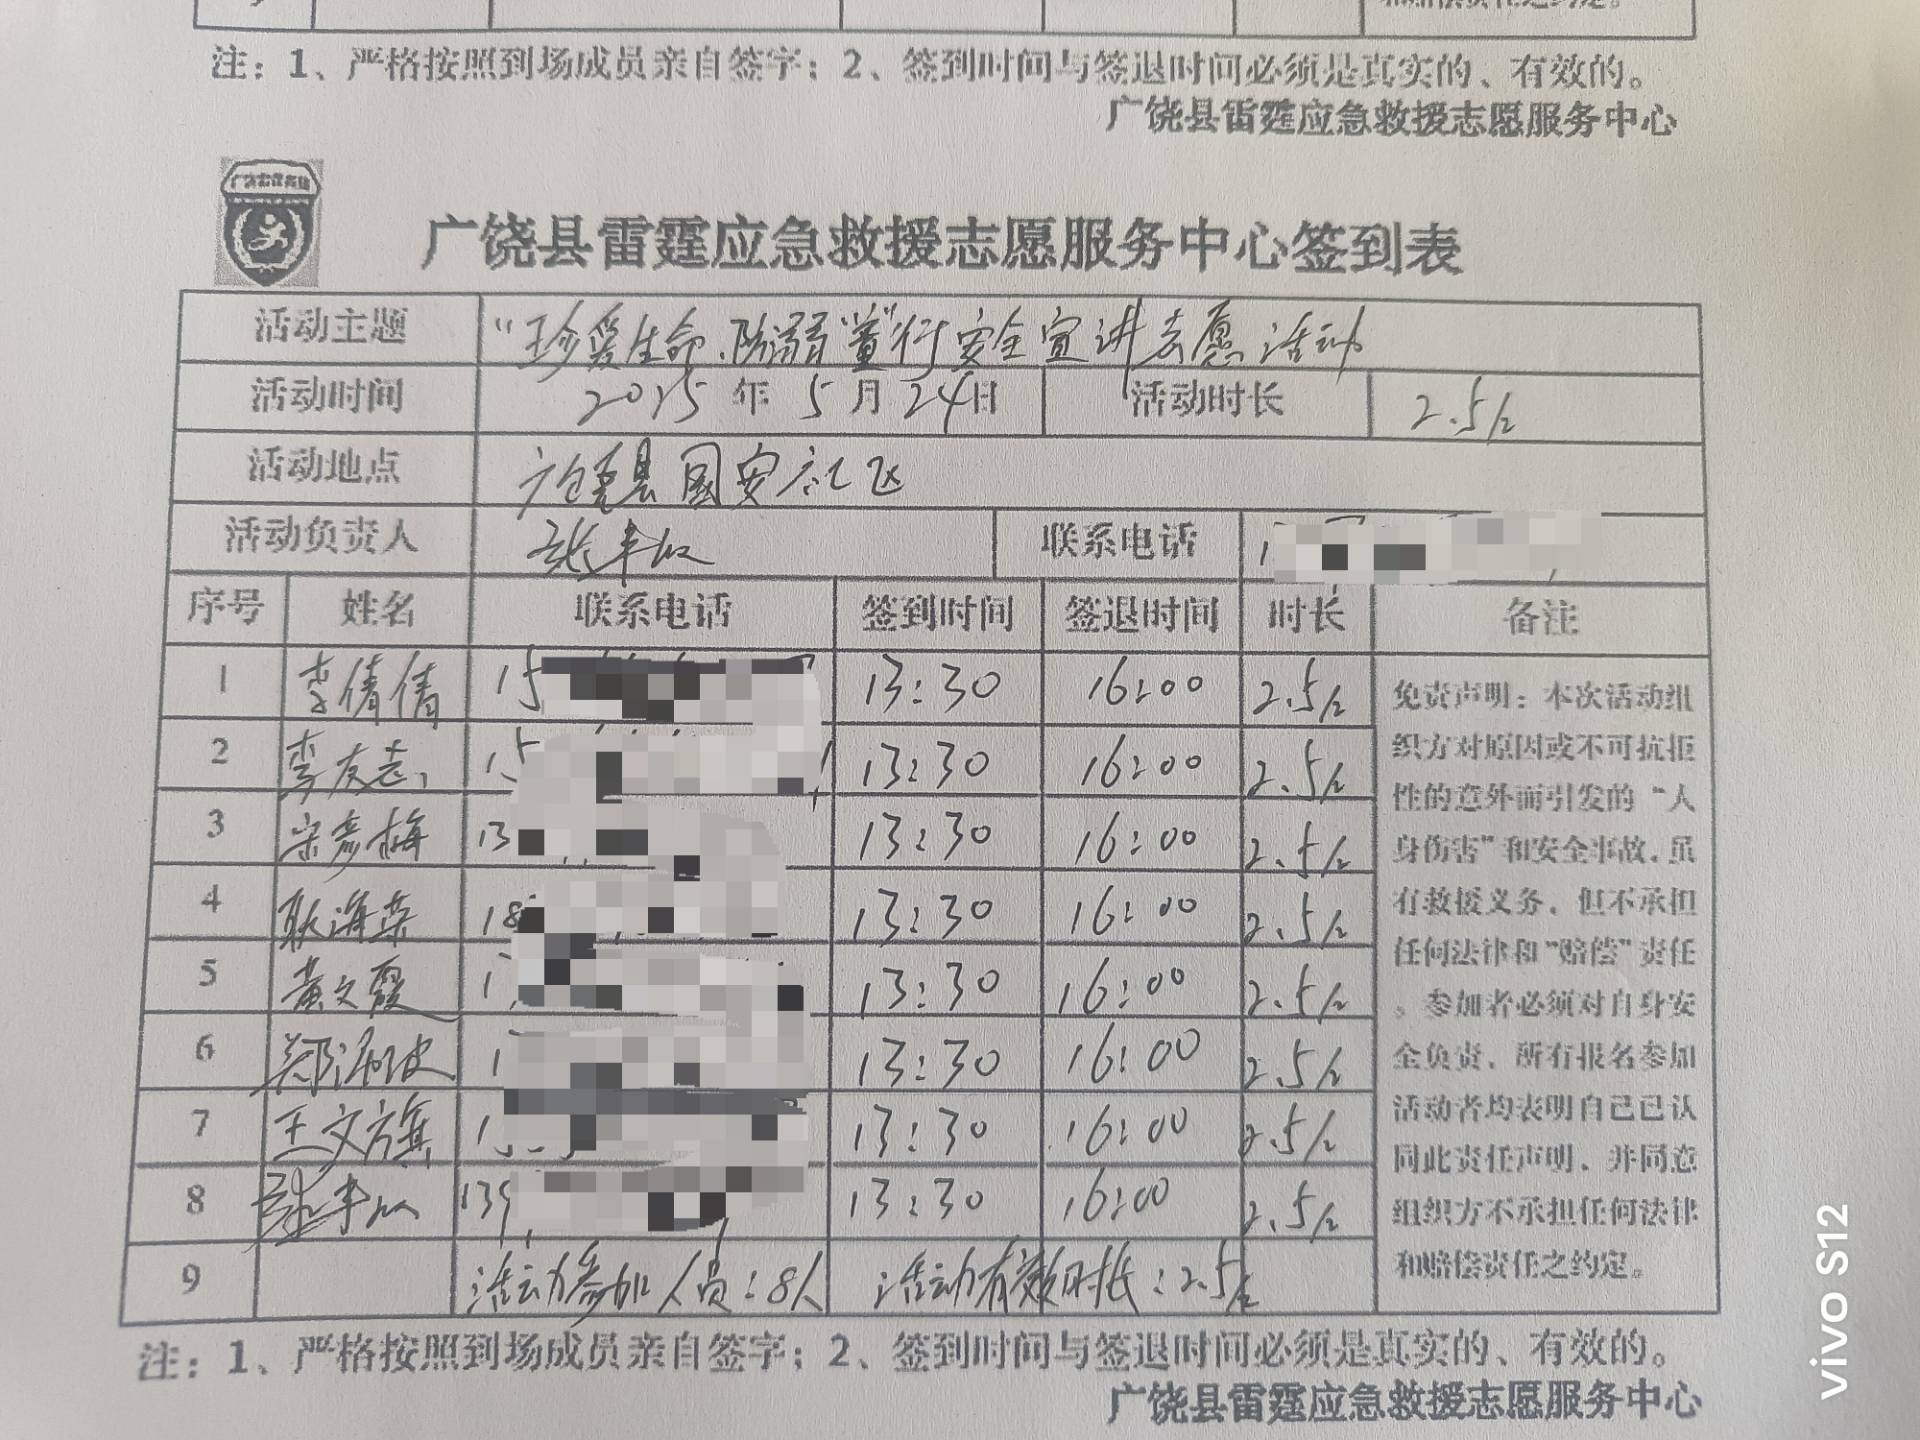 和赔偿责任之约定。
注：1、严格按照到场成员亲自签字；2、签到时间与签退时间必须是真实的、有效的。
广饶县雷霆应急救援志愿服务中心
广饶县雷霆应急救援志愿服务中心签到表
活动主题 “珍爱生命.防溺“童”行安全宣讲志愿活动
活动时间 2025年5月24日 活动时长 2.5h
活动地点 广饶县国安社区
活动负责人 联系电话 1
序号 姓名 联系电话 签到时间 签退时间 时长 备注
1 李倩倩 15 13:30 16:00 2.5h
2 李友志 15 13:30 16:00 2.5h
3 宋彦梅 13 13:30 16:00 2.5h
4 耿海荣 18 13:30 16:00 2.5h
5 黄文霞 1 13:30 16:00 2.5h
6 郑海波 1 13:30 16:00 2.5h
7 王文旗 1 13:30 16:00 2.5h
8 139 13:30 16:00 2.5h
9 活动参加人员：8人 活动有效时长：2.5h
免责声明：本次活动组
织方对原因或不可抗拒
性的意外而引发的“人
身伤害”和安全事故，虽
有救援义务，但不承担
任何法律和“赔偿”责任
。参加者必须对自身安
全负责，所有报名参加
活动者均表明自己已认
同此责任声明，并同意
组织方不承担任何法律
和赔偿责任之约定。
注：1、严格按照到场成员亲自签字；2、签到时间与签退时间必须是真实的、有效的。
广饶县雷霆应急救援志愿服务中心
vivo S12